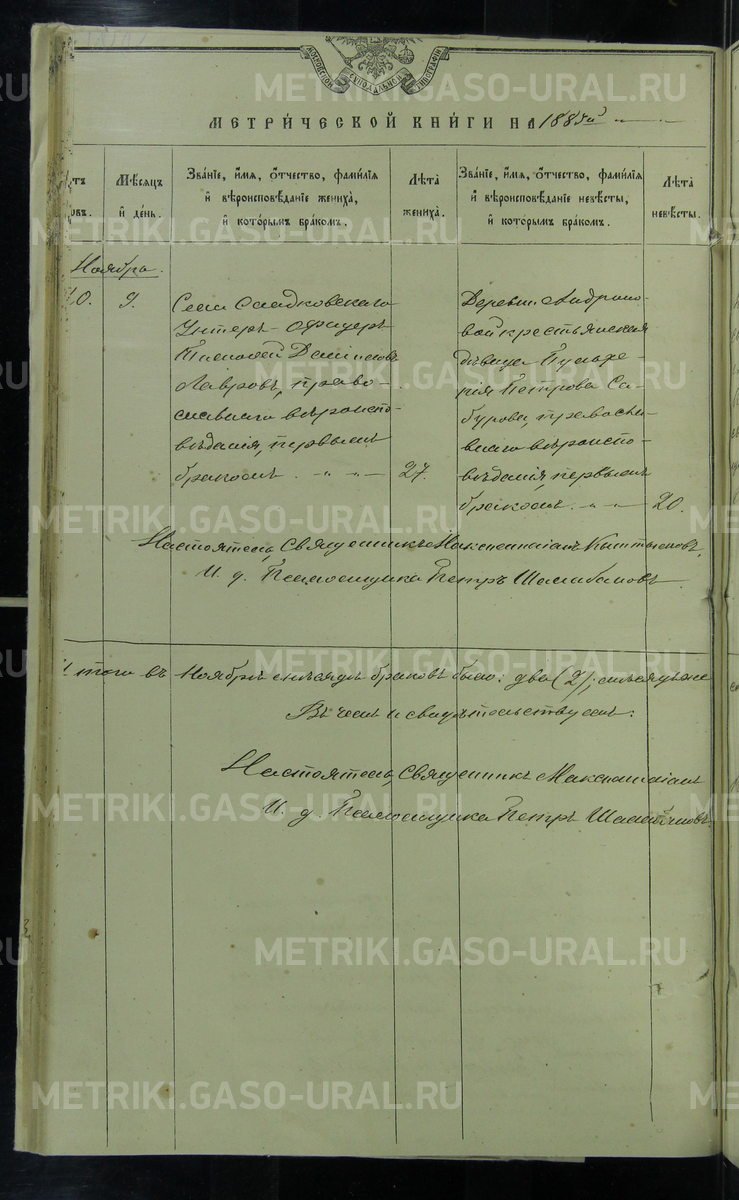 МОСКОВСКОЙ СѴНОДАЛЬНОЙ ТИПОГРАФІИ
МЕТРИ́ЧЕСКОЙ КНИ́ГИ НА 1885й
Мѣсяцъ и день.
Зва́ніе, и́мя, о́тчество, фами́лія и вѣроисповѣ́даніе жениха̀, и кото́рымъ бра́комъ.
Лѣта̀ жениха̀.
Зва́ніе, и́мя, о́тчество, фами́лія и вѣроисповѣ́даніе невѣ́сты, и кото́рымъ бра́комъ.
Лѣта̀ невѣ́сты.
Ноября.
10. 9.
Села Сладковскаго
Унтеръ-Офицеръ
Тимофей Данииловъ
Лавровъ, право-
славнаго вѣроиспо-
вѣданія, первымъ
бракомъ. 27.
Деревни Андроно-
вой крестьянская
дѣвица Пульхе-
рія Петрова Са-
бурова, правосла-
внаго вѣроиспо-
вѣданія, первымъ
бракомъ. 20.
Настоятель, Священникъ Максимиліанъ
И. д. Псаломщика Петръ
Итого въ Ноябрѣ мѣсяцѣ браковъ было: два (2);
Въ чемъ и свидѣтельствуемъ:
Настоятель, Священникъ Максимиліанъ
И. д. Псаломщика Петръ
METRIKI.GASO-URAL.RU